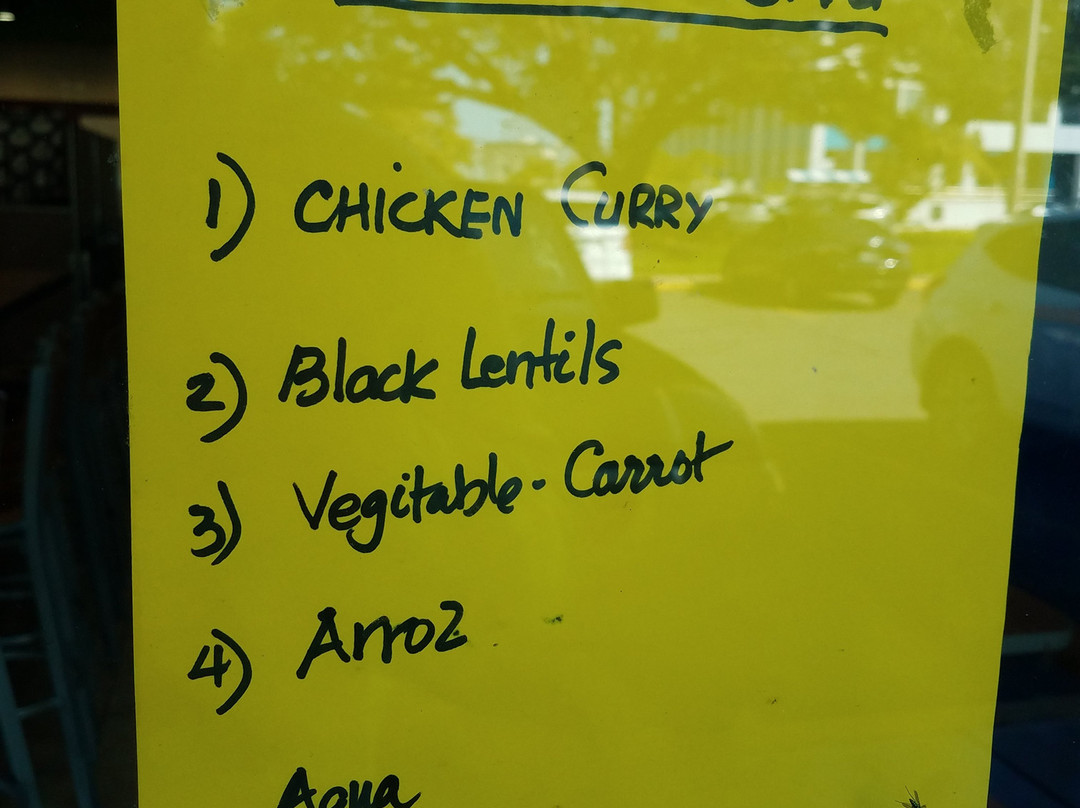 1) CHICKEN CURRY
2) Black Lentils
3) Vegitable - Carrot
4) Arroz
Aqua